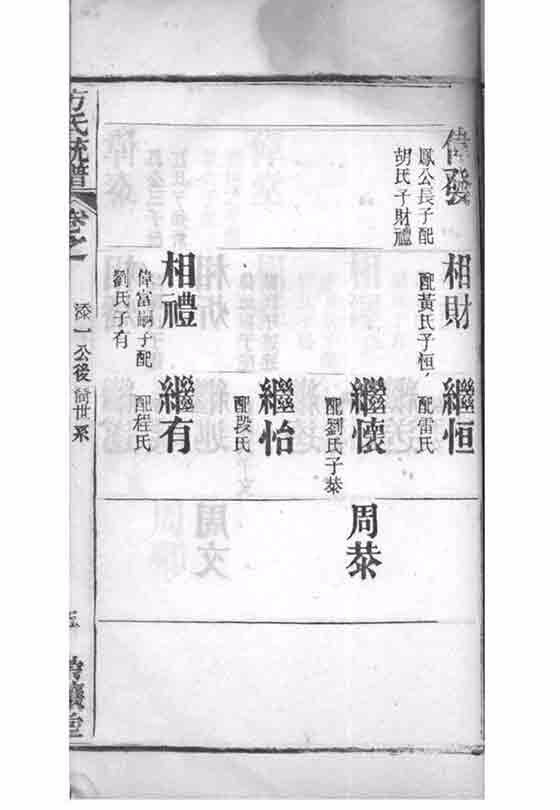 偉發
鳳公長子配
胡氏子財禮
相財
配黃氏子恒
繼恒
配雷氏
繼懷
配劉氏子恭
周恭
繼怡
配段氏
相禮
偉富嗣子配
劉氏子有
繼有
配程氏
方氏統譜
卷之一
添一公後
世系
五
堂